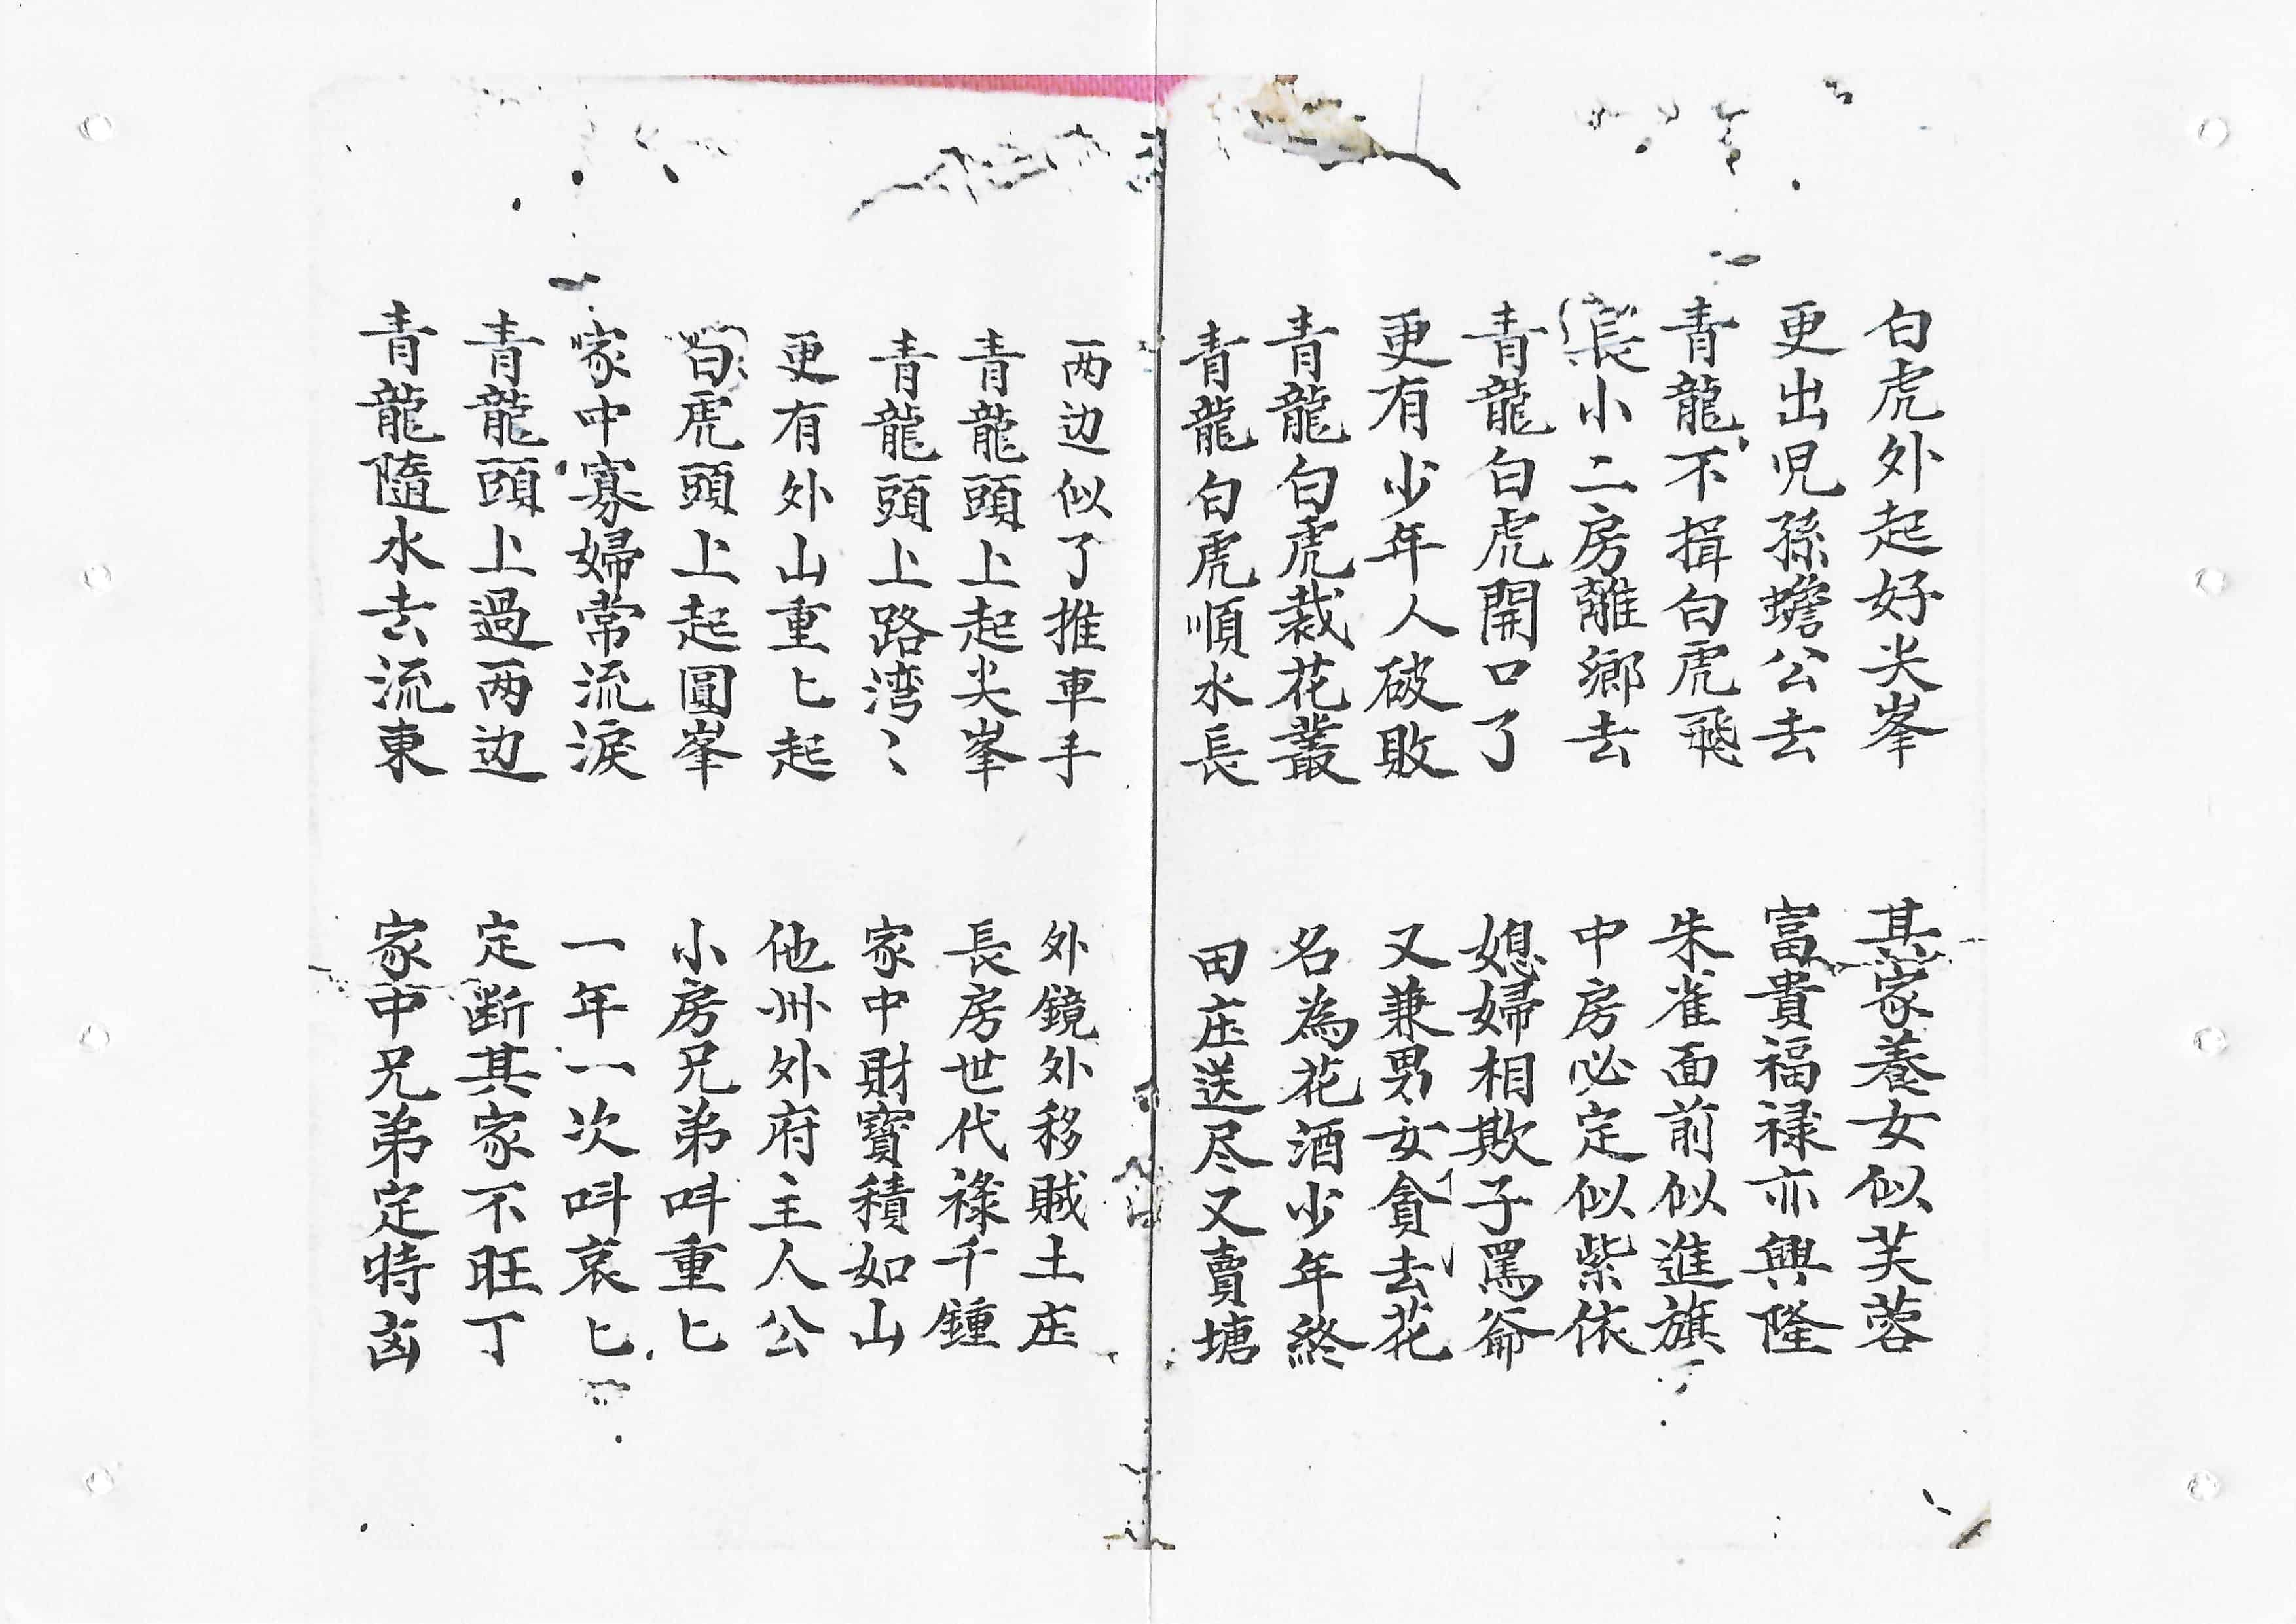 白虎外起好尖峯　其家養女似芙蓉
更出児孫蟾公去　富貴福禄亦興隆
青龍不揖白虎飛　朱雀面前似進旗
長小二房離鄉去　中房必定似紫依
青龍白虎開口了　媳婦相欺子罵爺
更有少年人破敗　又兼男女貪去花
青龍白虎裁花叢　名為花酒少年終
青龍白虎順水長　田庄送尽又賣塘
两边似了推車手　外鏡外移賊土庄
青龍頭上起尖峯　長房世代祿千鍾
青龍頭上路湾〻　家中財寶積如山
更有外山重匕起　他州外府主人公
白虎頭上起圓峯　小房兄弟呌重匕
家中寡婦常流淚　一年一次呌哀匕
青龍頭上過两边　定断其家不旺丁
青龍隨水去流東　家中兄弟定特凶